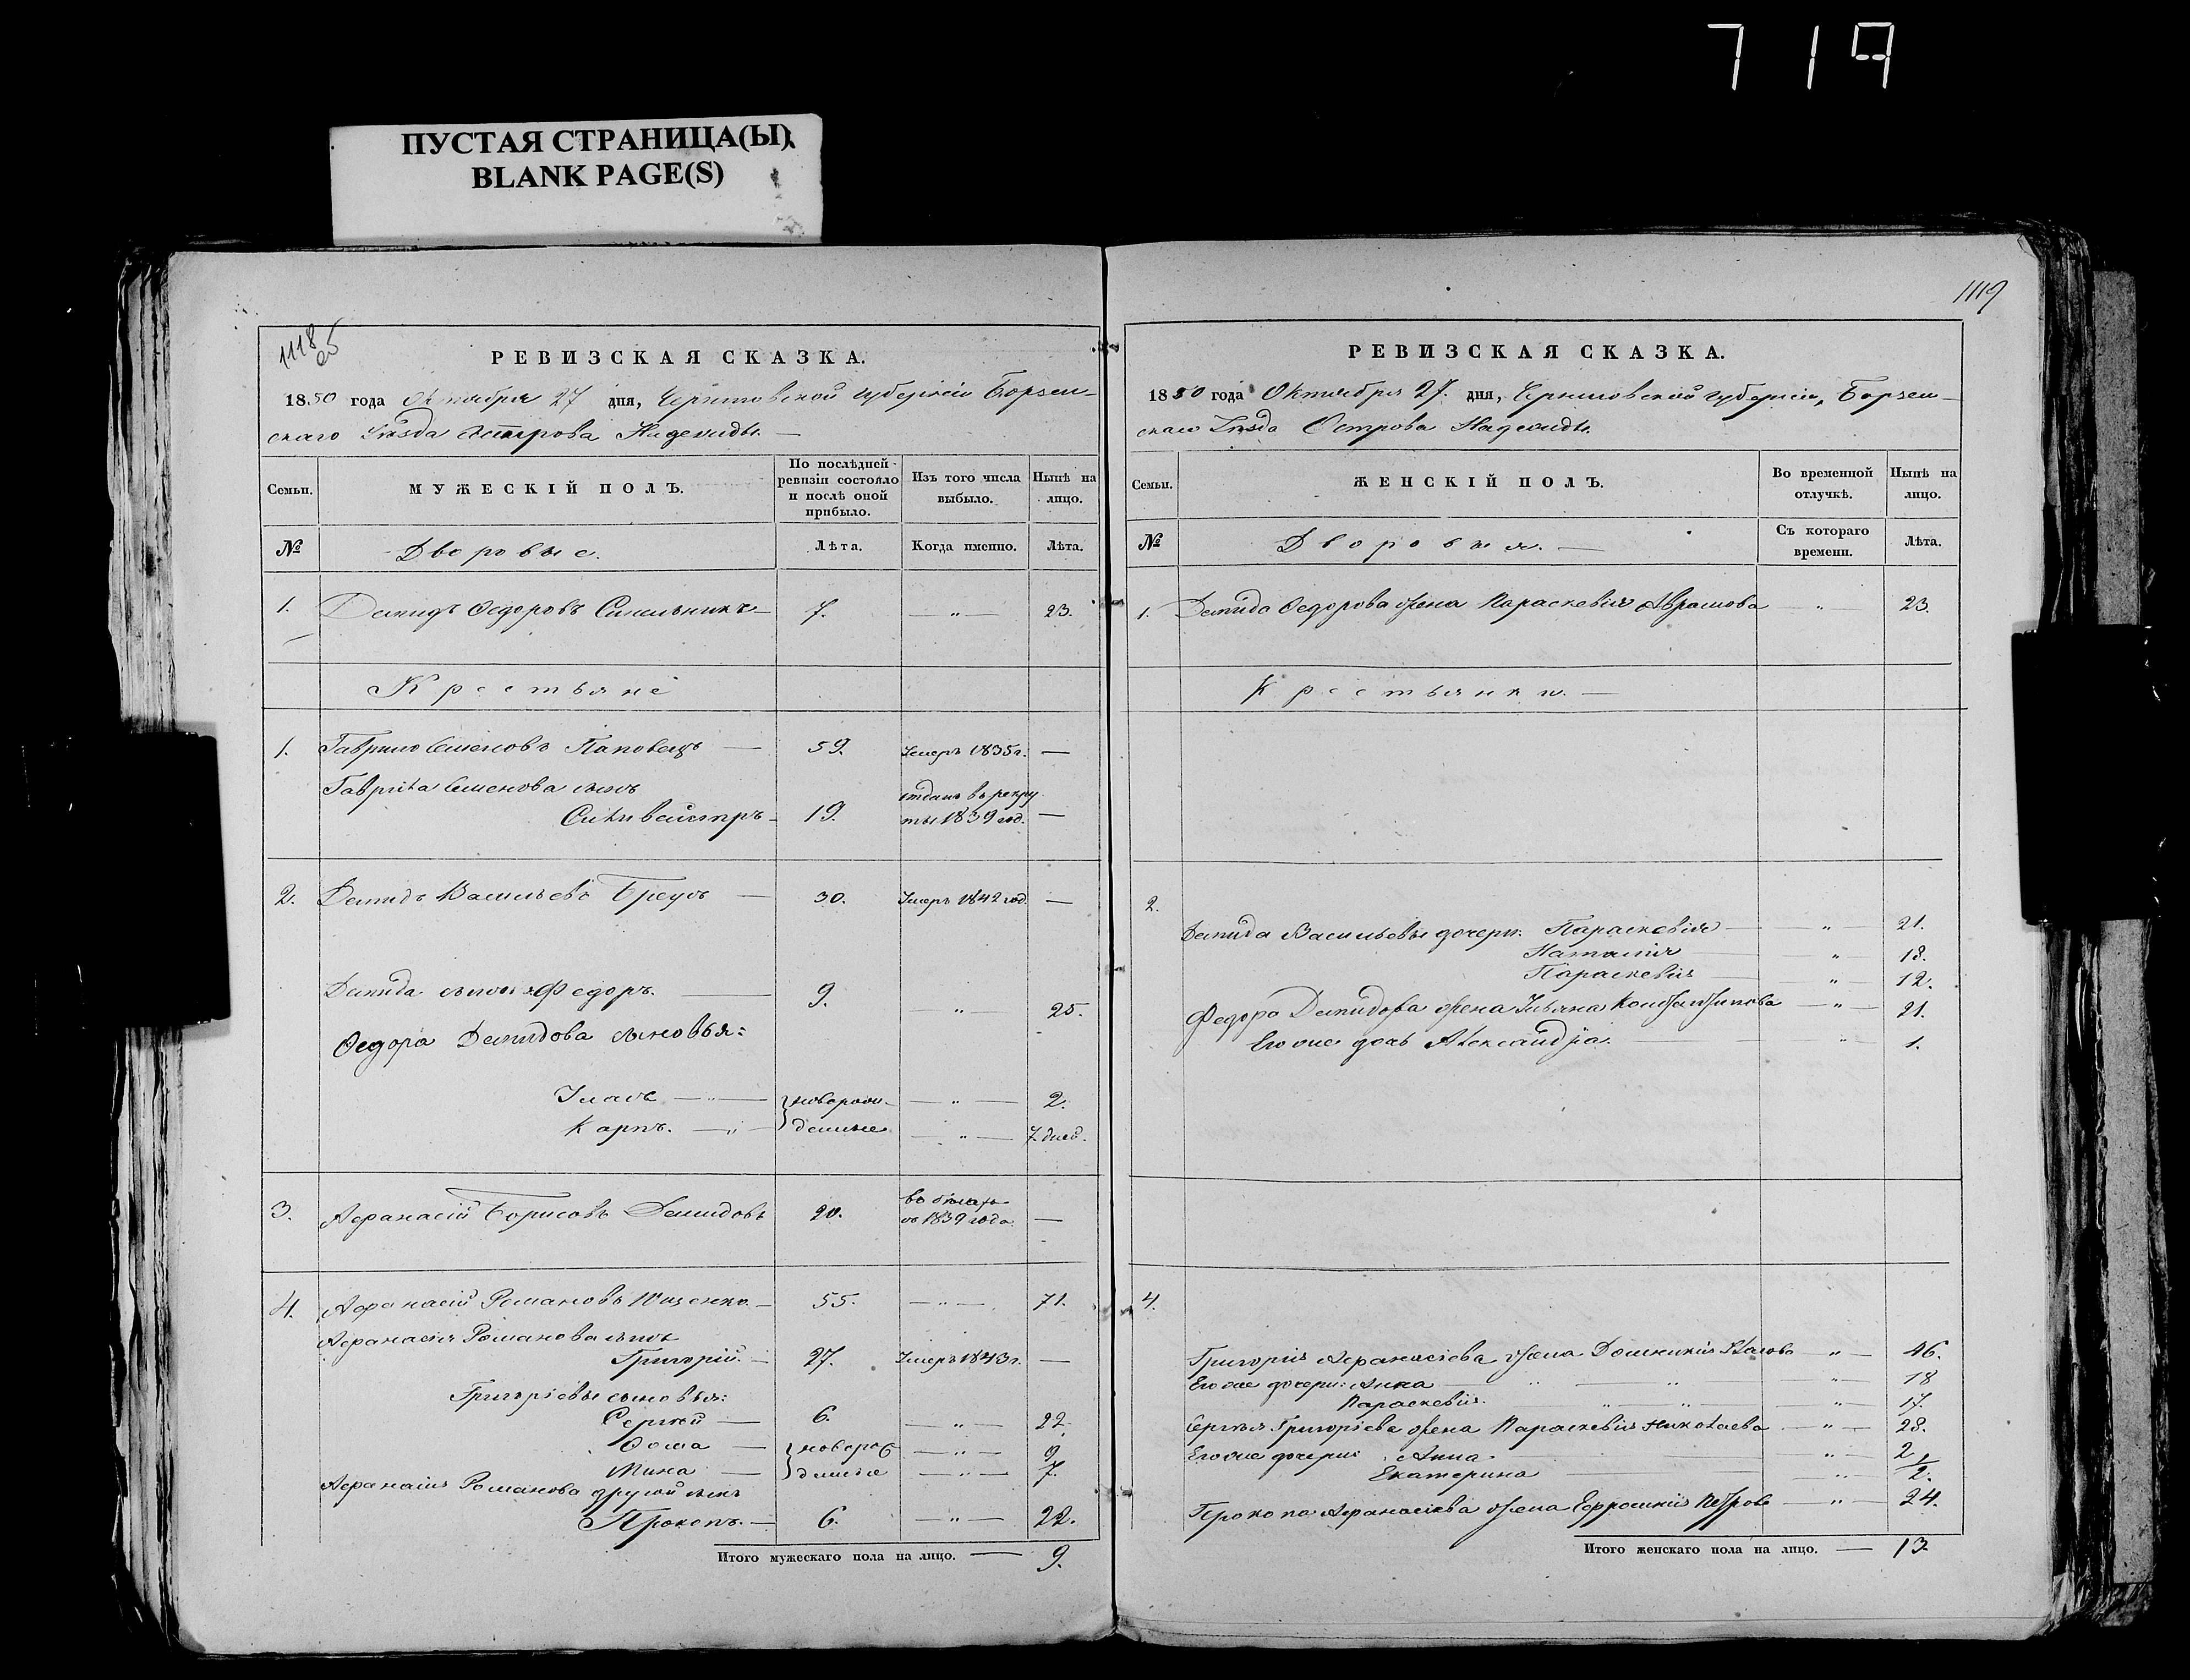 719
ПУСТАЯ СТРАНИЦА(Ы)
BLANK PAGE(S)
1118
об
РЕВИЗСКАЯ СКАЗКА.
1850 года Октября 27 дня, Черниговской Губерніи Борзен-
скаго Уѣзда Острова Надежды. —
Семьи. МУЖЕСКІЙ ПОЛЪ. По послѣдней ревизіи состояло и послѣ оной прибыло. Изъ того числа выбыло. Нынѣ на лицо.
№ Дворовые. Лѣта. Когда именно. Лѣта.
1. Демидъ Ѳедоровъ Синельникъ 7. — „ — 23.
Крестьяне
1. Гаврило Семеновъ Паповецъ — 59. Умеръ 1835 г. —
Гаврила Семенова сынъ
Силивейстръ 19. отданъ въ рекру ты 1839 год. —
2. Демидъ Васильевъ Бреусъ — 30. Умеръ 1842 год. —
Демида сынъ Федоръ. — 9. — „ — 25.
Ѳедора Демидова сыновья:
Власъ — „ — новорож- — „ — 2.
Карпъ. — „ — денные — „ — 7 дней.
3. Афанасій Борисовъ Демидовъ 20. въ бѣгахъ съ 1839 года —
4. Афанасій Романовъ Ющенко. — 55. — „ — 71.
Афанасія Романова сынъ
Григорій. — 27. Умеръ 1843 г. —
Григорьевы сыновья:
Сергѣй — 6. — „ — 22.
Ѳома — новорож — „ — 9
Мина — денные — „ — 7.
Афанасія Романова другой сынъ
Прокопъ. — 6. — „ — 22.
Итого мужескаго пола на лицо. — 9.
1119
РЕВИЗСКАЯ СКАЗКА.
1850 года Октября 27. дня, Черниговской губерніи, Борзен-
скаго Уѣзда Острова Надежды.
Семьи. ЖЕНСКІЙ ПОЛЪ. Во временной отлучкѣ. Нынѣ на лицо.
№ Дворовыя. — Съ котораго времени. Лѣта.
1. Демида Ѳедорова жена Параскевія Абрамова „ 23.
Крестьянки. —
2.
Демида Васильева дочери: Параскевія — „ — 21.
Наталія — „ 18.
Параскевія — „ — 12.
Федора Демидова жена Ульяна — „ — 21.
Его же дочь Александра. — „ — 1.
4.
Григорія Афанасіева жена Домникія Власова — „ — 46.
Его же дочери: Анна — „ — „ „ 18
Параскевія. „ „ „ 17.
Сергѣя Григоріева жена Параскевія Николаева — „ — 23.
Его же дочери Анна „ 2
Екатерина — „ 1/2.
Прокопа Афанасіева жена Ефросинія Петрова — „ — 24.
Итого женскаго пола на лицо. — 13.